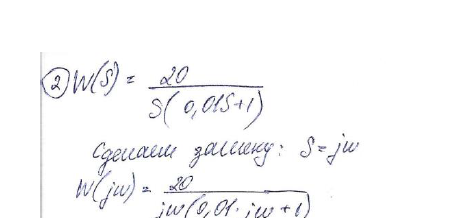 ② W(S) = 20 / S(0,01S+1)
Сделаем замену: S=jw
W(jw) = 20 / jw(0,01·jw+1)